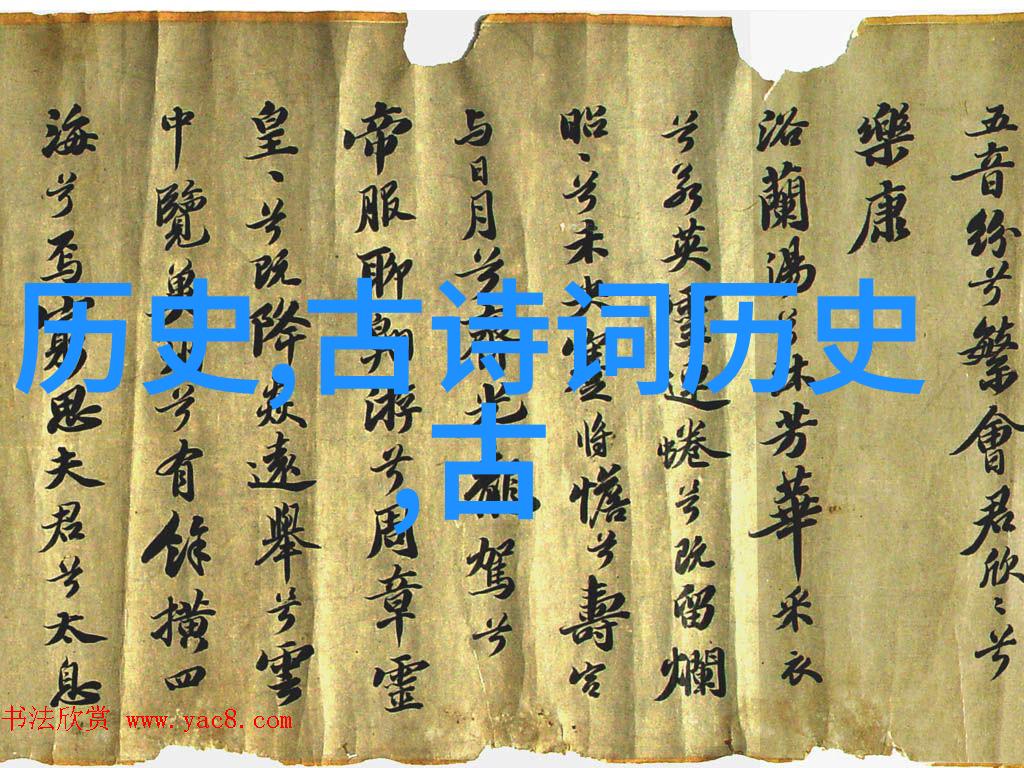 五音紛兮繁會君欣、兮
樂康
浴蘭湯兮沐芳華采衣
兮若英靈連蜷兮既留爛
昭、兮未央蹇將憺兮壽宮
与日月兮齊光龍駕兮
帝服聊翱游兮周章靈
皇、兮既降猋遠舉兮雲
中覽冀州兮有餘橫四
海兮焉窮思夫君兮太息
历史,古诗词历史
,古
书法欣赏 www.yac8.com